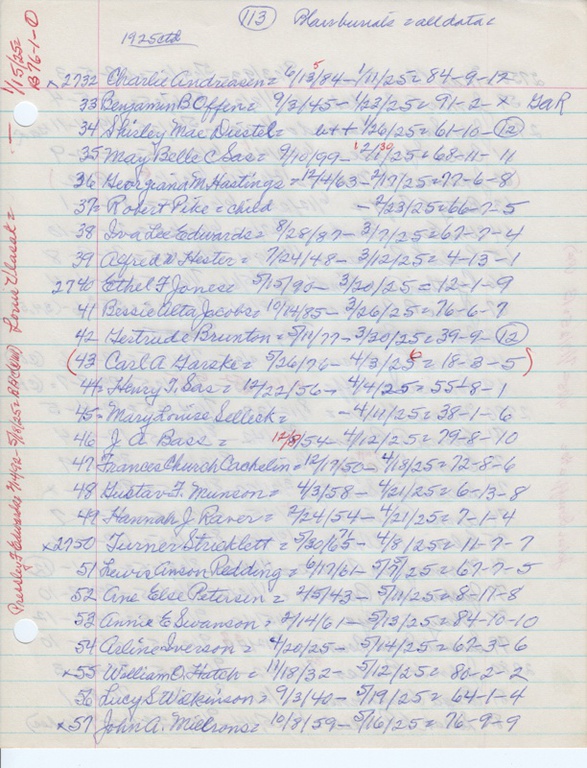 113 Blair burials = all data =
1925 ctd
x2732 Charlie Andreasen = 6/13/84 - 1/11/25 = 84-9-12
5
33 Benjamin B Offen = 9/3/45 - 1/22/25 = 91-2- x GaR
34 Shirley Mae Diestel = b++ 1/26/25 = 61-10-12
35 May Belle C Sas = 9/10/99 - 2/1/25 = 68-11-11
1 30
36 Georgiana M Hastings = 12/4/63 - 2/17/25 = 77-6-8
37 = Robert Pike = child - 2/23/25 = 66-7-5
38 Iva Lee Edwards = 8/28/87 - 3/7/25 = 67-7-4
39 Alfred W Hester = 7/24/48 - 3/12/25 = 4-13-1
2740 Ethel F Jones = 5/15/90 - 3/20/25 = 12-1-9
41 Bessie Alta Jacobs = 10/14/85 - 3/26/25 = 76-6-7
42 Gertrude Brunton = 5/11/77 - 3/20/25 = 39-9-12
(43 Carl A Garske = 5/26/76 - 4/3/25 = 18-3-5)
6
44 = Henry T. Sas = 12/22/56 - 4/4/25 = 55-8-1
45 = Mary Louise Selleck = - 4/11/25 = 38-1-6
46 J A Bass = 12/8/54 - 4/12/25 = 79-8-10
47 Frances Church Cachelin = 12/17/50 - 4/18/25 = 72-8-6
48 Gustav F. Munson = 4/3/58 - 4/21/25 = 6-13-8
49 Hannah J Raver = 2/24/54 - 4/21/25 = 7-1-4
x2750 Turner Stricklett = 5/30/65 - 4/8/25 = 11-7-7
71
51 Lewis Anson Redding = 6/17/61 - 5/5/25 = 67-7-5
52 Ane Else Petersen = 2/5/43 - 5/11/25 = 8-11-8
53 Annie E Swanson = 2/14/61 - 5/13/25 = 84-10-10
54 Arline Iverson = 4/20/25 - 5/14/25 = 67-3-6
x55 William O. Hatch = 11/18/32 - 5/12/25 = 80-2-2
56 Lucy S Wilkinson = 9/3/40 - 5/19/25 = 64-1-4
x57 John A. Millrons = 10/8/59 - 5/16/25 = 76-9-9
Presley F Edwards 7/14/92 - 5/18/25 =
1/15/25 =
B76-1-①